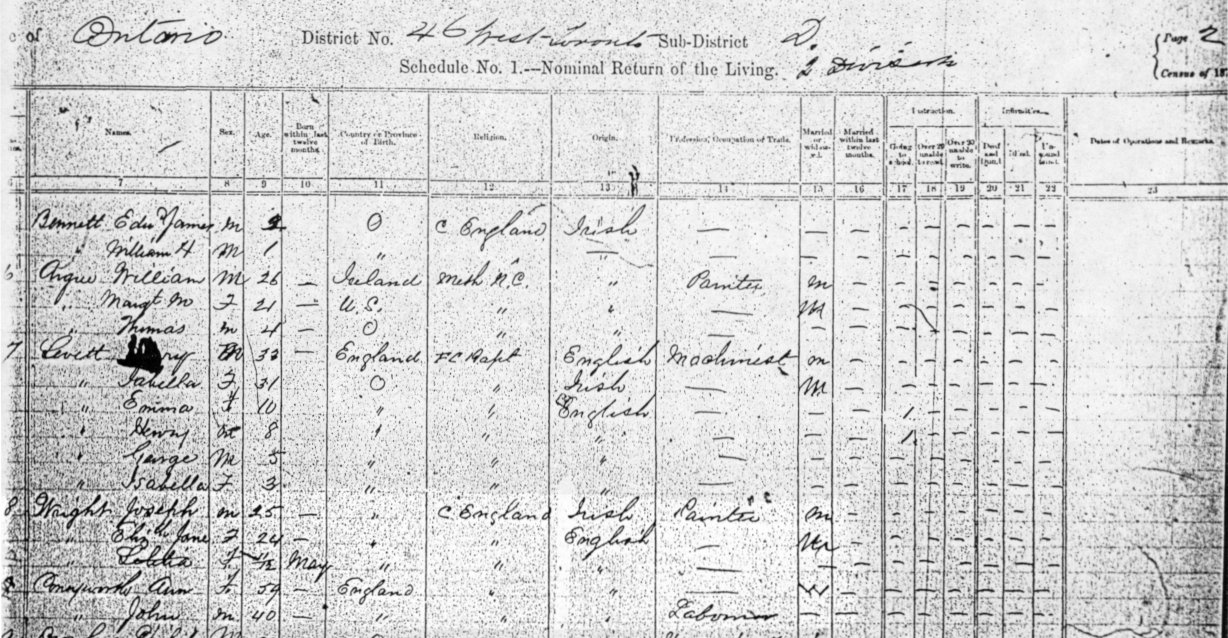 e of Ontario District No. 46 West Toronto Sub-District D. Page 2
Schedule No. 1.--Nominal Return of the Living. 2 Division Census of 187
Names. Sex. Age. Born within last twelve months. Country or Province of Birth. Religion. Origin. Profession, Occupation or Trade. Married or widowed. Married within last twelve months. Instruction. Going to school. Over 20 unable to read. Over 20 unable to write. Infirmities. Deaf and Dumb. Blind. Unsound mind. Dates of Operations and Remarks.
7 8 9 10 11 12 13 14 15 16 17 18 19 20 21 22 23
Bennett James M O C England Irish —
" William H M 1 " —
6 Argue William M 26 — Ireland Meth N.C. " Painter M —
" Margt M F 21 — U.S. " " — M —
" Thomas M 4 — O " " — —
7 Levett M 33 — England F C Bapt English Machinist M —
" Isabella F 31 O " Irish — M —
" Emma F 10 " " English — — 1
" Henry M 8 " " " — — 1
" George M 5 " " " — —
" Isabella F 3 " " " — —
8 Wright Joseph M 25 — " C England Irish Painter M —
" Elizth Jane F 24 — " " English — M —
" Letitia F May " " " — —
England " " — W —
" John M 40 — " " " Labourer — —